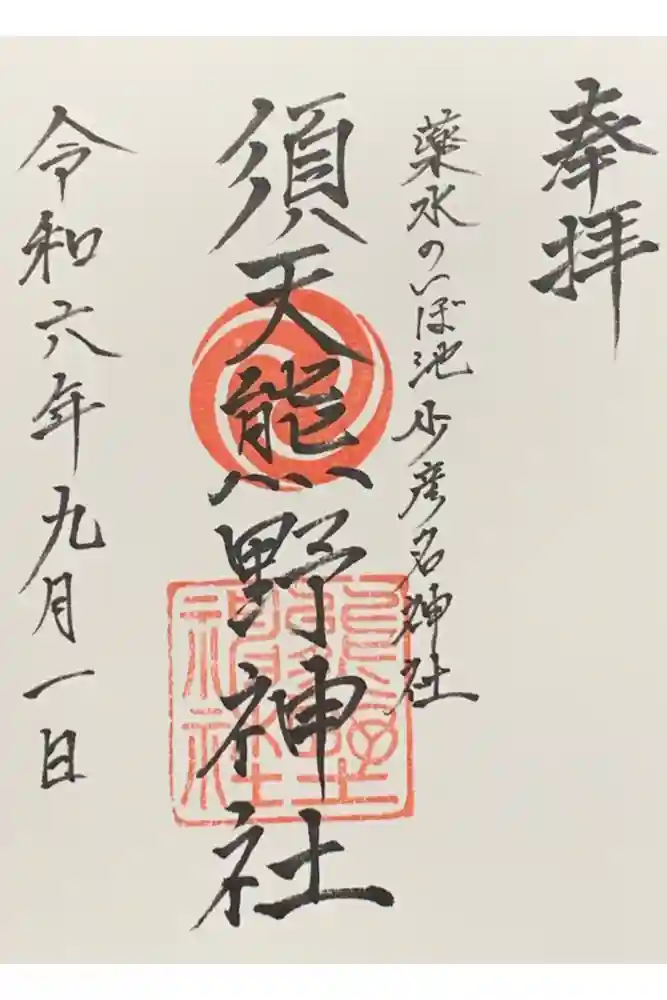 奉拝
薬水のいぼ池少彦名神社
須天熊野神社
熊野
神社
令和六年九月一日